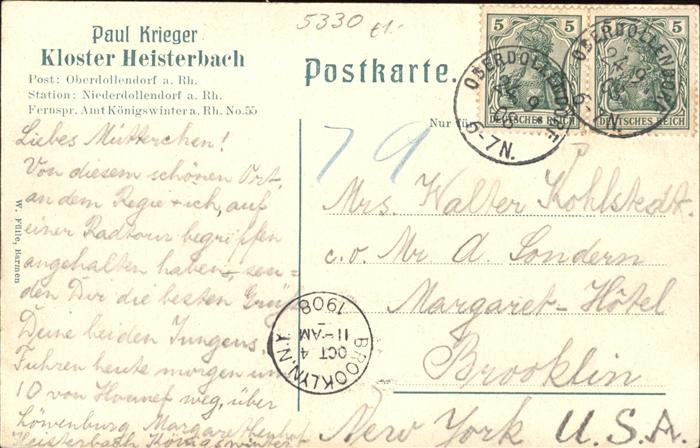 5330 £1.-
Paul Krieger
Kloster Heisterbach
Post: Oberdollendorf a. Rh.
Station: Niederdollendorf a. Rh.
Fernspr. Amt Königswinter a. Rh. No. 55
Postkarte.
Nur für
5
5
DEUTSCHES REICH
DEUTSCHES REICH
OBERDOLLENDORF
24 9
6-7N.
OBERDOLLENDORF
24 9
6-7N.
79
Liebes Mütterchen!
Von diesem schönen Ort,
an dem Regie + ich, auf
einer Radtour begriffen
angehalten haben, sen=
den Dir die besten Grüße
Deine beiden Jungens.
Fuhren heute morgen um
10 von Honnef weg, über
Löwenburg, Margarethenhof
Heisterbach Königswinter
W. Fülle, Barmen
Mrs. Walter Kohlstedt
c.o. Mr A. Londern
Margaret-Hôtel
Brooklin
New York U.S.A.
BROOKLYN, N.Y.
OCT 4
11-AM
1908